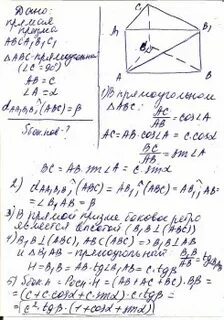 Дано:
прямая
призма
ABCA₁B₁C₁
△ABC-прямоугольный
(∠C = 90°)
AB = c
∠A = α
dAA₁B₁B^(ABC) = β
Sбок пов. - ?
C₁
A₁
B₁
C
A
B
1) В прямоугольном
△ABC:
AC/AB = cos∠A
AC = AB·cos∠A = c·cosα
BC/AB = sin∠A
BC = AB·sin∠A = c·sinα
2) dAA₁B₁B^(ABC) = AB₁^(ABC) = AB₁^AB =
= ∠B₁AB = β
3) В прямой призме боковое ребро
является высотой (B₁B⊥(ABC))
4) B₁B⊥(ABC), AB⊂(ABC) ⇒ B₁B⊥AB
и △B₁AB - прямоугольный B₁B/AB = tg∠B₁AB
H = B₁B = AB·tg∠B₁AB = c·tgβ
5) Sбок п = Pосн·H = (AB + AC + BC)·B₁B =
= (c + c·cosα + c·sinα)·c·tgβ =
= c²·tgβ·(1 + cosα + sinα)